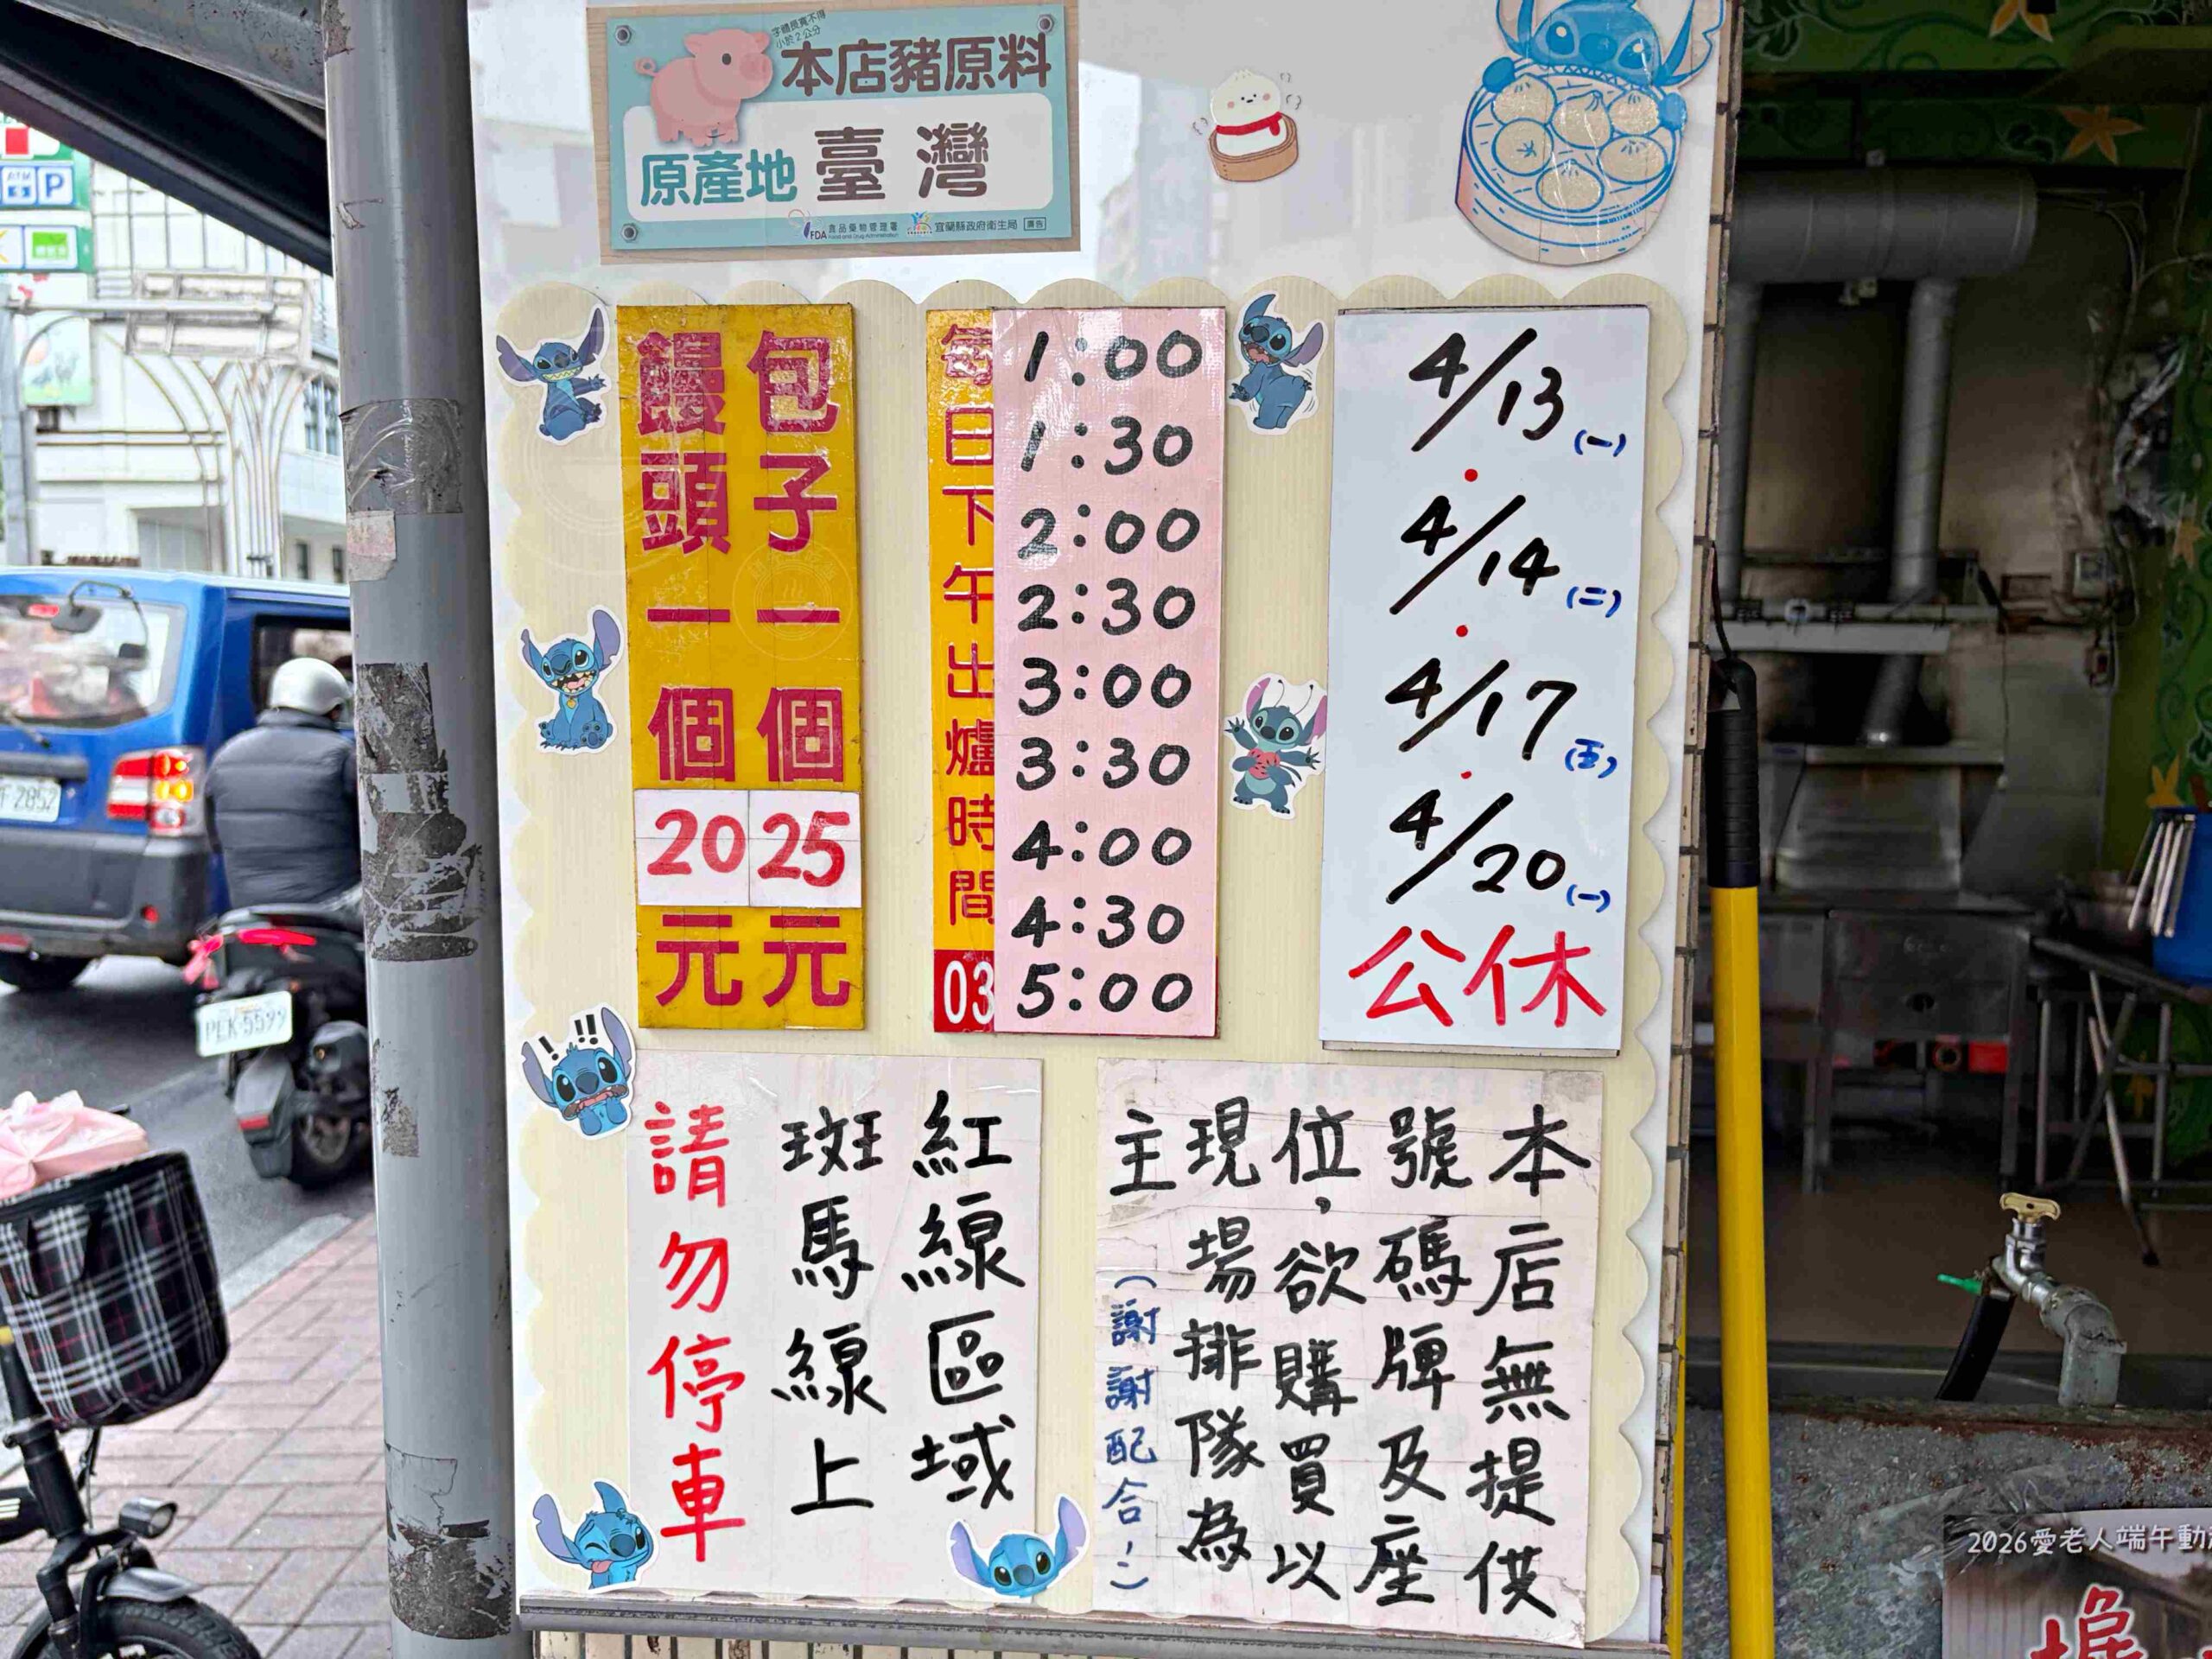 字體長寬不得
小於2公分
本店豬原料
原產地 臺灣
FDA 食品藥物管理署
Food and Drug Administration
宜蘭縣政府衛生局 廣告
包子一個25元
饅頭一個20元
每日下午出爐時間
03
1:00
1:30
2:00
2:30
3:00
3:30
4:00
4:30
5:00
4/13(一)
4/14(二)
4/17(五)
4/20(一)
公休
紅線區域
斑馬線上
請勿停車
本店無提供
號碼牌及座
位,欲購買以
現場排隊為
主(謝謝配合!)
2026愛老人端午動
ATM
P
2852
PEK-5599